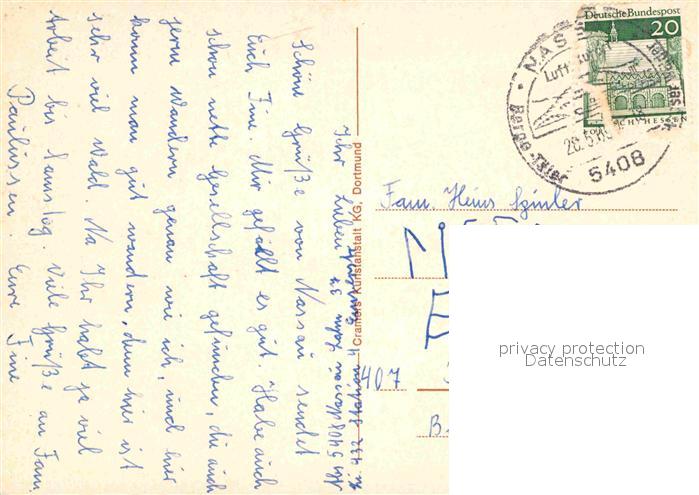 Ihr Lieben
Schöne Grüße von Nassau sendet
Euch Fine. Mir gefällt es gut. Habe auch
schon nette Gesellschaft gefunden, die auch
gern Wandern genau wie ich, und hier
kann man gut wandern, denn hier ist
sehr viel Wald. Na Ihr habt ja viel
Arbeit bis Samstag. Viele Grüße an Fam.
Paulissen. Eure Fine
Cramers Kunstanstalt KG, Dortmund
Deutsche Bundespost
20
NASS
Luft
Berge-Täler
5408
Fam. Heins
407
privacy protection
Datenschutz